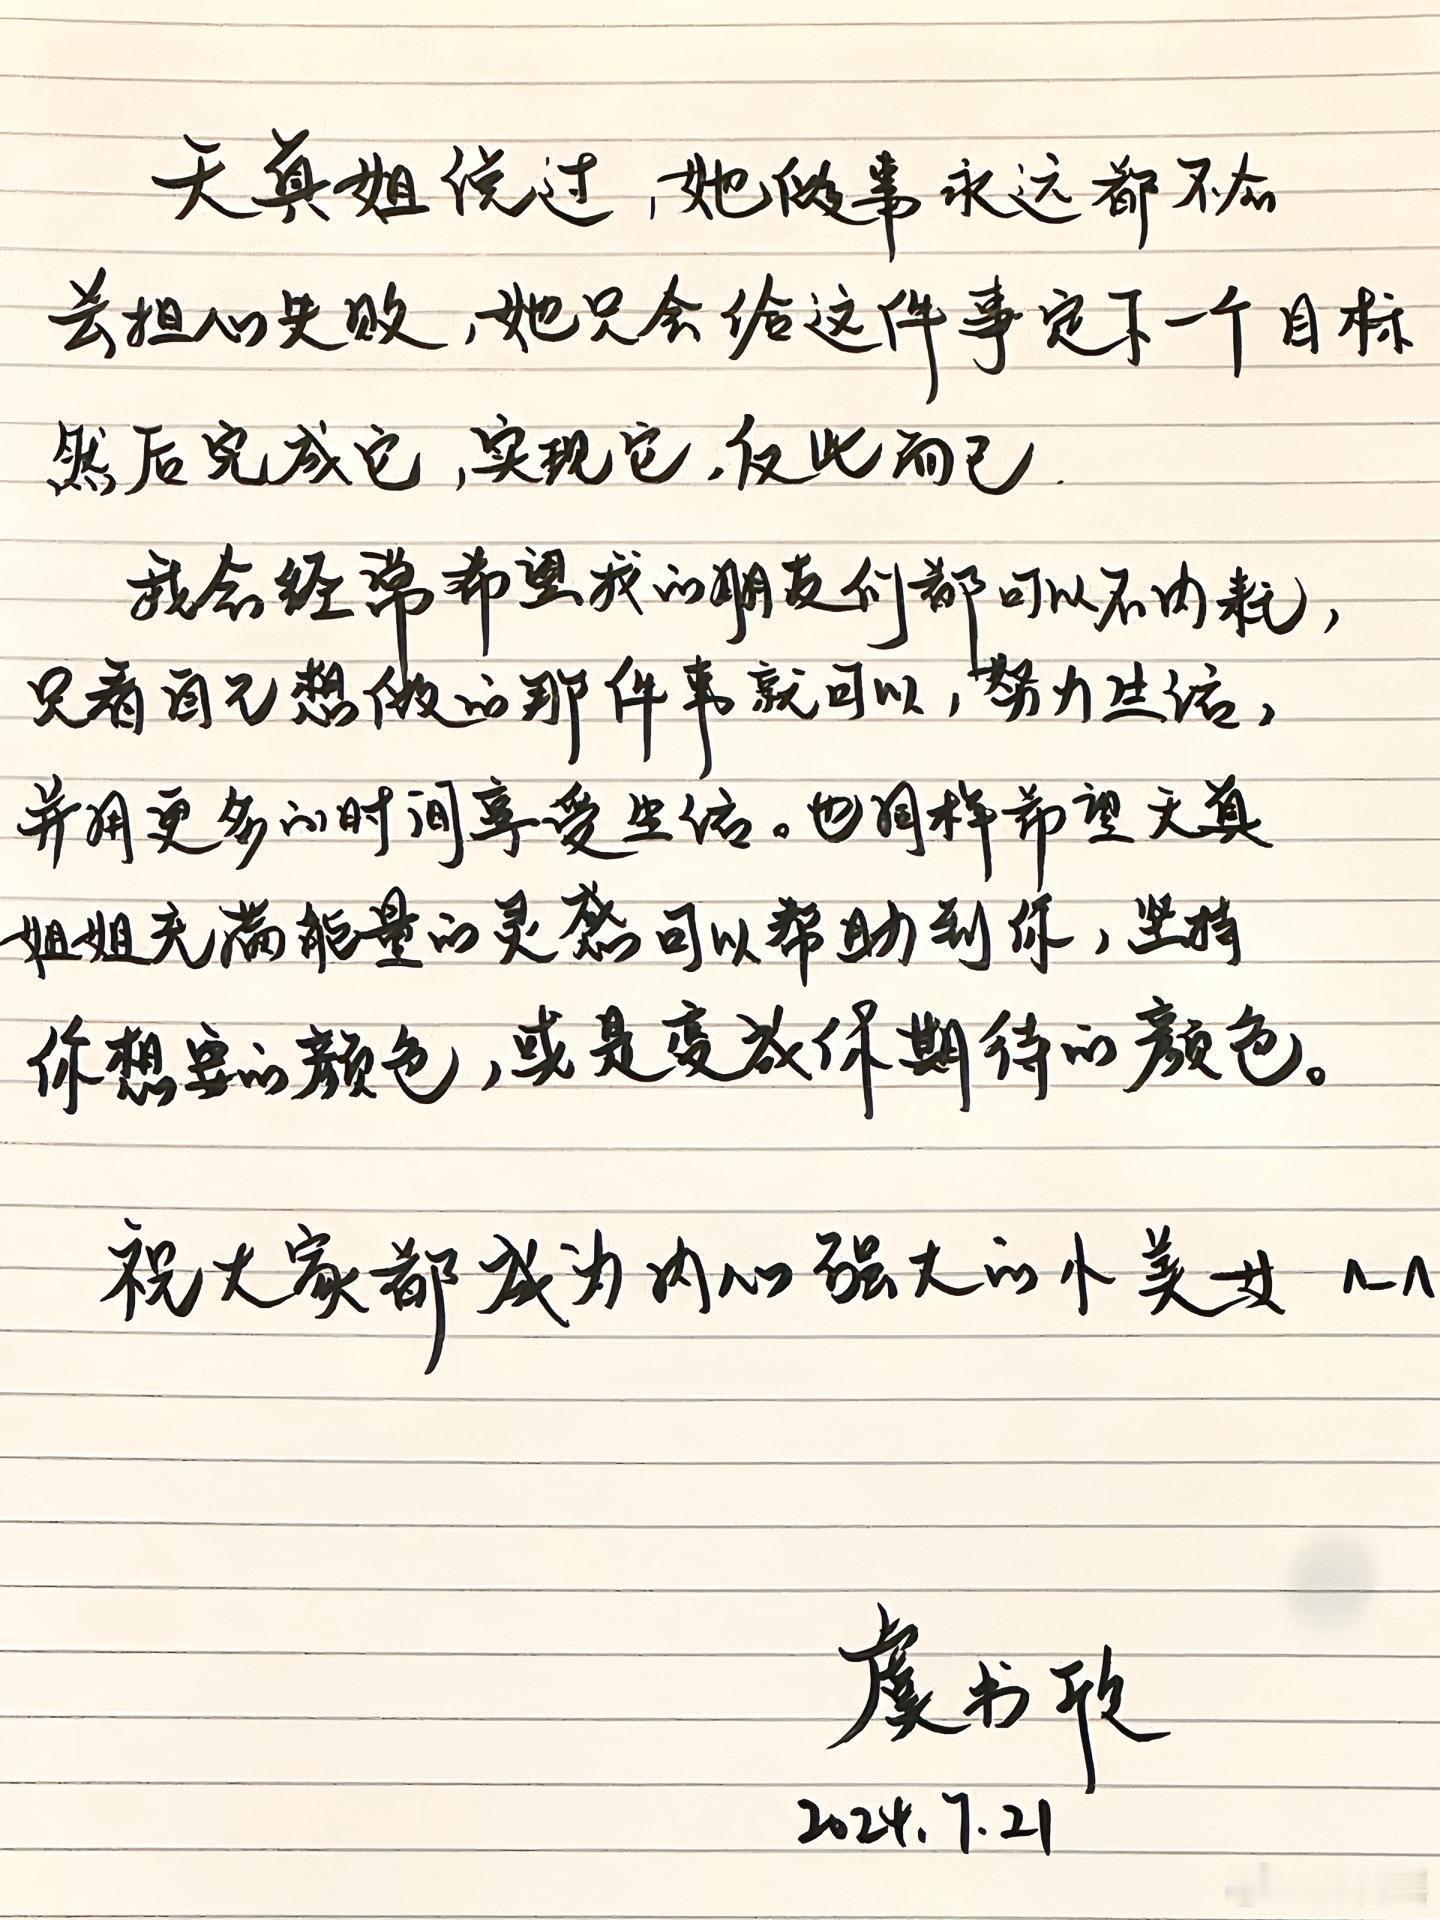 天真姐说过，她做事永远都不会
去担心失败，她只会给这件事定下一个目标
然后完成它，实现它，仅此而已.
我会经常希望我的朋友们都可以不内耗，
只看自己想做的那件事就可以，努力生活，
并用更多的时间享受生活。也同样希望天真
姐姐充满能量的灵感可以帮助到你，坚持
你想要的颜色，或是变成你期待的颜色。
祝大家都成为内心强大的小美女 ^-^
虞书欣
2024.7.21